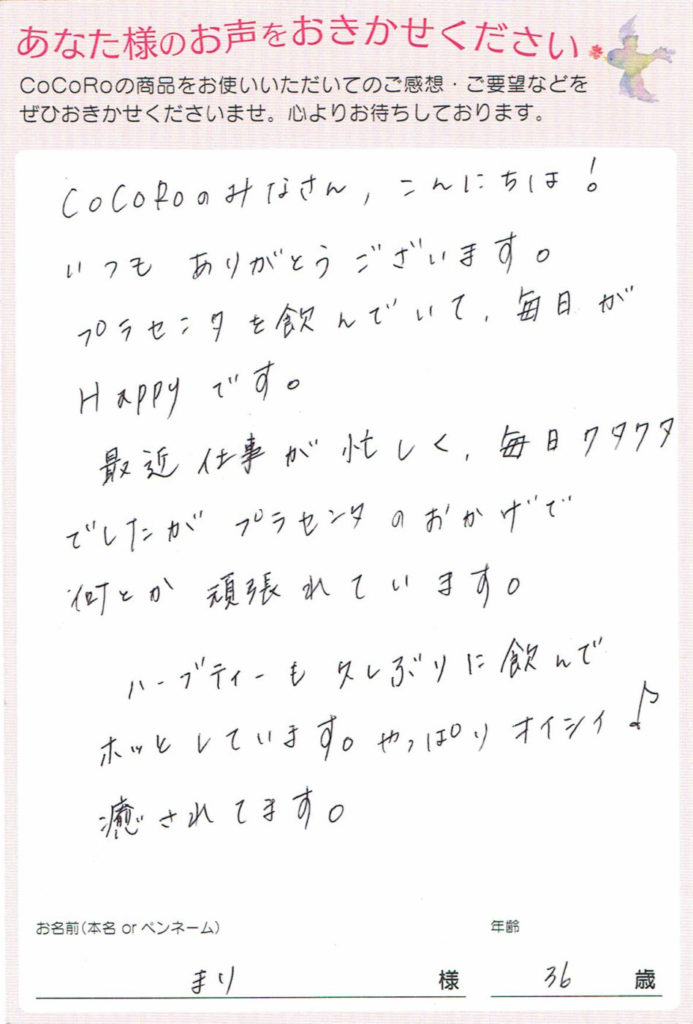 あなた様のお声をおきかせください
CoCoRoの商品をお使いいただいてのご感想・ご要望などを
ぜひおきかせくださいませ。心よりお待ちしております。
CoCoRoのみなさん,こんにちは!
いつも ありがとうございます。
プラセンタを飲んでいて,毎日が
Happyです。
最近仕事が忙しく,毎日クタクタ
でしたがプラセンタのおかげで
何とか 頑張れています。
ハーブティーも久しぶりに飲んで
ホッとしています。やっぱりオイシイ♪
癒されてます。
お名前(本名 or ペンネーム)
年齢
まり 様 36 歳